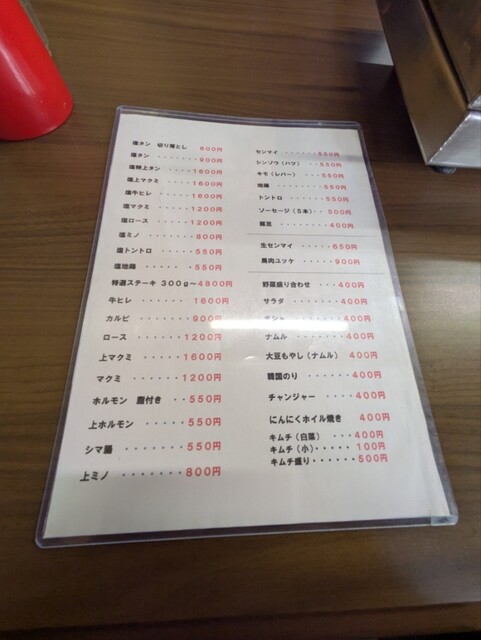 塩タン 切り落とし 600円
塩タン ・・・・・・ 900円
塩特上タン ・・・・ 1800円
塩上マクミ ・・・・ 1600円
塩牛ヒレ ・・・・・ 1600円
塩マクミ ・・・・・ 1200円
塩ロース ・・・・・ 1200円
塩ミノ ・・・・・・ 800円
塩トントロ ・・・・・ 550円
塩地鶏 ・・・・・ 550円
特選ステーキ 300g〜4800円
牛ヒレ ・・・・・・ 1600円
カルビ ・・・・・・・ 900円
ロース ・・・・・・ 1200円
上マクミ ・・・・・・ 1600円
マクミ ・・・・・・・ 1200円
ホルモン 腹付き ・・ 550円
上ホルモン ・・・・・ 550円
シマ腸 ・・・・・・・ 550円
上ミノ ・・・・・・・・ 800円
センマイ ・・・・・・550円
シンゾウ(ハツ) ・・・550円
キモ(レバー) ・・・550円
地鶏 ・・・・・・・550円
トントロ ・・・・・550円
ソーセージ(5本)・・500円
・・・・・・・400円
生センマイ ・・・・・650円
馬肉ユッケ ・・・・・900円
野菜盛り合わせ ・・・400円
サラダ ・・・・・・400円
400円
ナムル ・・・・・・400円
大豆もやし(ナムル) 400円
韓国のり ・・・・・・400円
チャンジャー ・・・・400円
にんにくホイル焼き 400円
キムチ(白菜) ・・・400円
キムチ(小)・・・・・100円
キムチ盛り・・・・・・500円